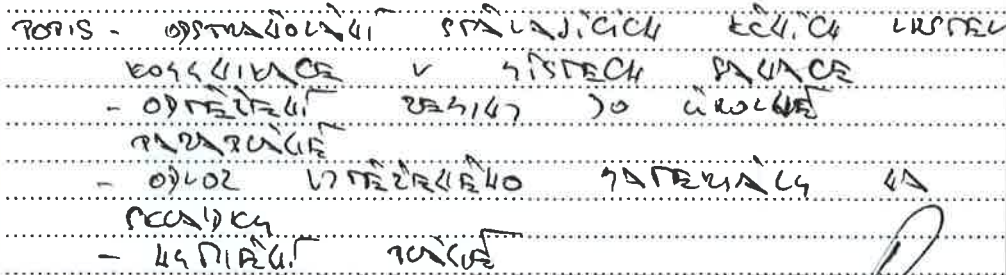 POPIS - ODSTRANOVÁNÍ STÁVAJÍCÍCH VRSTEV
KOMUNIKACE V MÍSTECH SANACE
- ODTĚŽENÍ ZEMINY DO ÚROVNĚ
PARAPLÁNĚ
- ODVOZ VYTĚŽENÉHO MATERIÁLU NA
SKLÁDKU
- HUTNĚNÍ PLÁNĚ